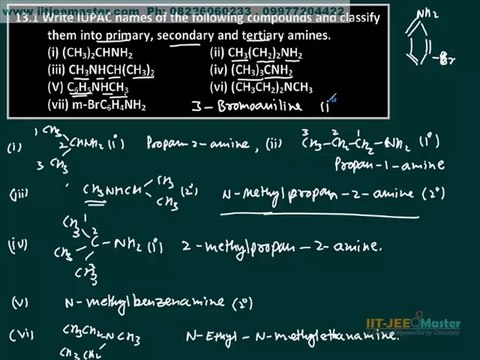 www.iitjeemaster.com Ph: 08236060233, 09977204422
13.1 Write IUPAC names of the following compounds and classify
them into primary, secondary and tertiary amines.
(i) (CH3)2CHNH2 (ii) CH3(CH2)2NH2
(iii) CH3NHCH(CH3)2 (iv) (CH3)3CNH2
(V) C6H5NHCH3 (vi) (CH3CH2)2NCH3
(vii) m-BrC6H4NH2 3-Bromoaniline (1°
NH2
Br
(i) 1 CH3 2 CHNH2 (1°) Propan-2-amine, (ii) 3 CH3-2 CH2-1 CH2-NH2 (1°)
3 CH3
Propan-1-amine
(iii) CH3NHCH CH3 CH3 (2°) N-methylpropan-2-amine (2°)
(iv) CH3 1 CH3 C 2 NH2 (1°) 2-methylpropan-2-amine.
CH3 3
(v) N-methylbenzenamine (2°)
(vi) CH3CH2 NCH3 N-Ethyl-N-methylethanamine.
CH3CH2
IIT-JEE Master